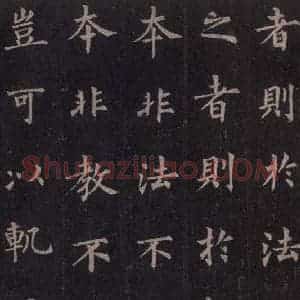 者則於法
之者則於
本非法不
本非教不
豈可以軌
Shufaziliao.COM